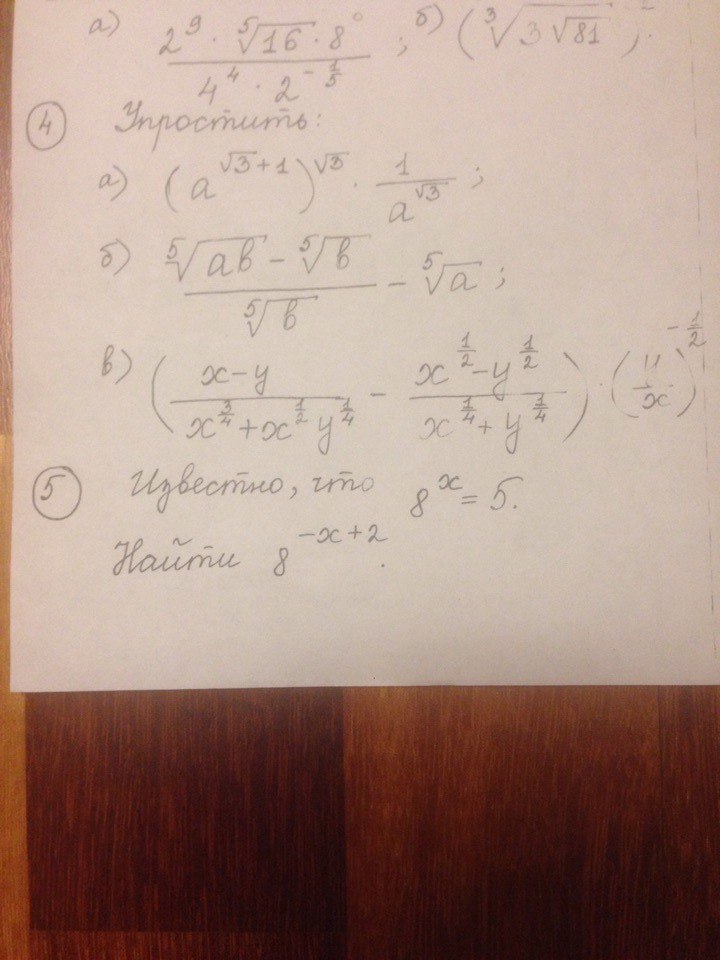 а) (2^9 · ⁵√16 · 8^0) / (4^4 · 2^(-1/5)) ; б) (∛(3√81))
④ Упростить:
а) (a^(√3+1))^√3 · 1/a^√3 ;
б) (⁵√(ab) - ⁵√b) / ⁵√b - ⁵√a ;
в) ((x-y)/(x^(3/4) + x^(1/2) y^(1/4)) - (x^(1/2) - y^(1/2))/(x^(1/4) + y^(1/4))) · (y/x)^(-1/2)
⑤ Известно, что 8^x = 5.
Найти 8^(-x+2).